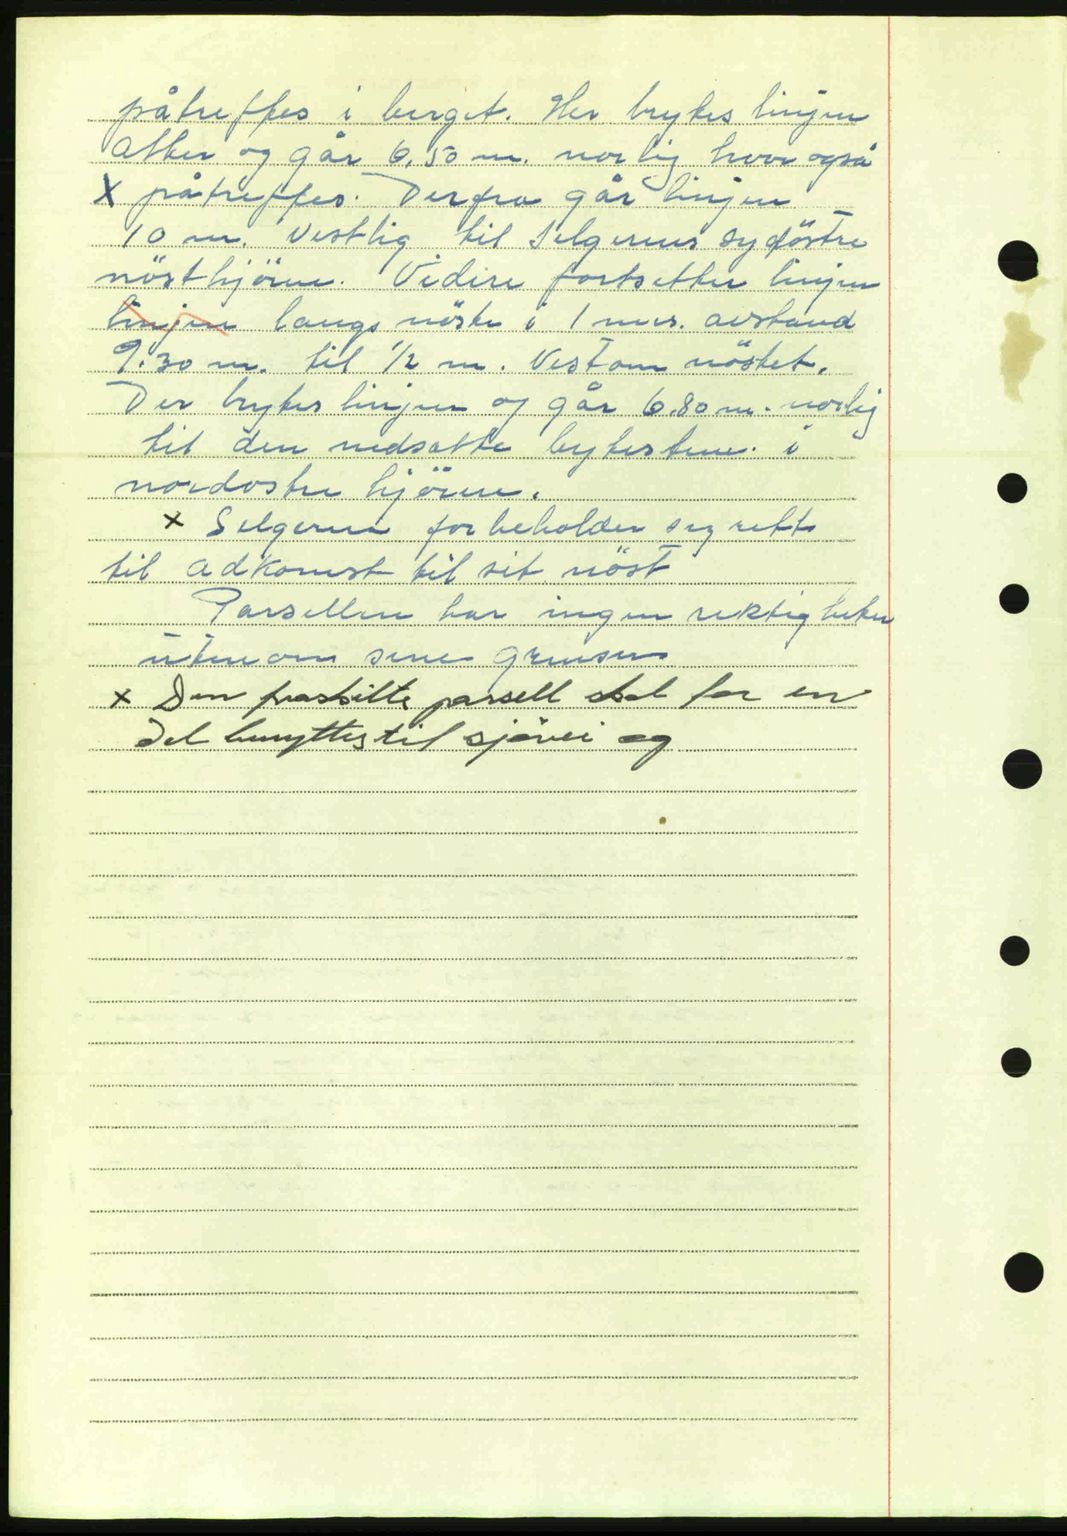 påtreffes i berget. Her brytes linjen
atter og går 6,50 m. norlig hvor også
X påtreffes. Derfra går linjen
10 m. vestlig til Selgerens sydöstre
nösthjörne. Videre fortsetter linjen
linjen langs nöste i 1 mtrs. avstand
9.30 m. til 1/2 m. Vestom nöstet.
Der brytes linjen og går 6.80 m. norlig
til den nedsatte bytesten i
nordostre hjörne.
x Selgeren forbeholder seg rett
til adkomst til sit nöst
Parsellen har ingen rektigheter
utenom sine grenser
x Den fraskilte parsell skal for en
del benyttes til sjövei og